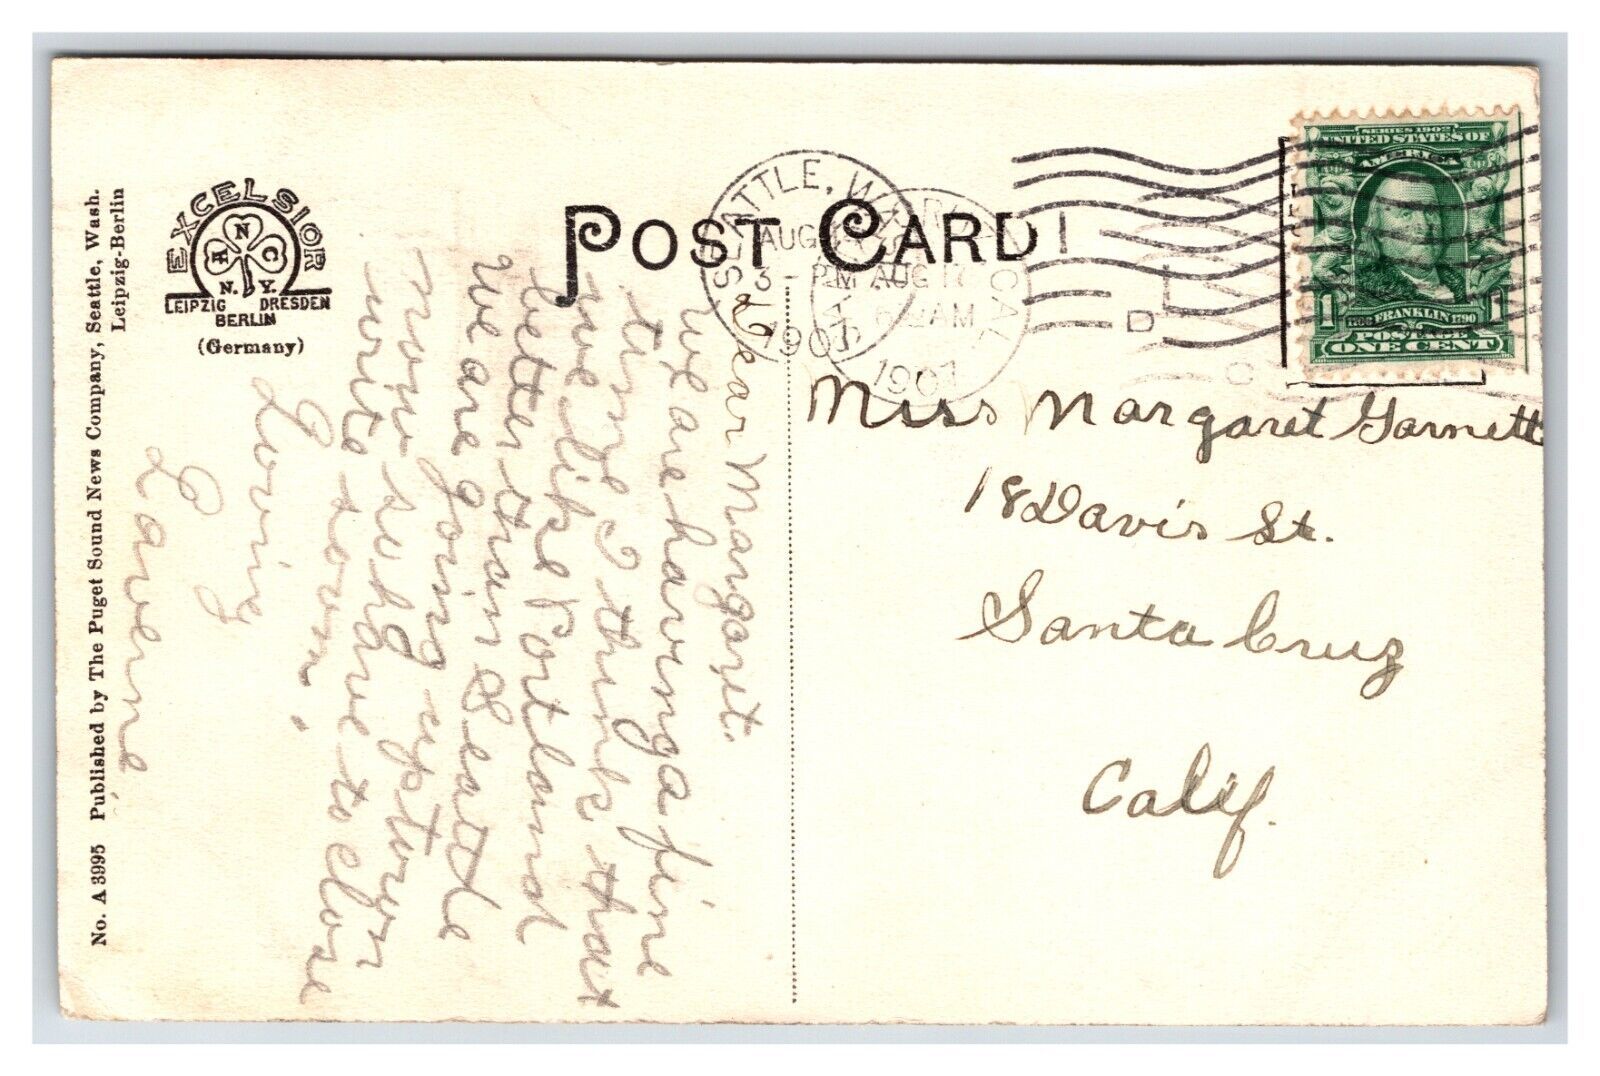 No. A 3995 Published by The Puget Sound News Company, Seattle, Wash.
Leipzig-Berlin
EXCELSIOR
A N C
N. Y.
LEIPZIG DRESDEN
BERLIN
(Germany)
POST CARD
SEATTLE, WA
AUG
3 - PM
1907
CAL
AUG 17
AM
1907
D
SERIES 1902
UNITED STATES OF
AMERICA
1 1
FRANKLIN 1790
POSTAGE
ONE CENT
Dear Margaret.
We are having a fine
time I think that
we like Portland
better than Seattle
We are going uptown
now so have to close
write soon.
Loving
Laverne
Miss Margaret Garnett
18 Davis St.
Santa Cruz
Calif.